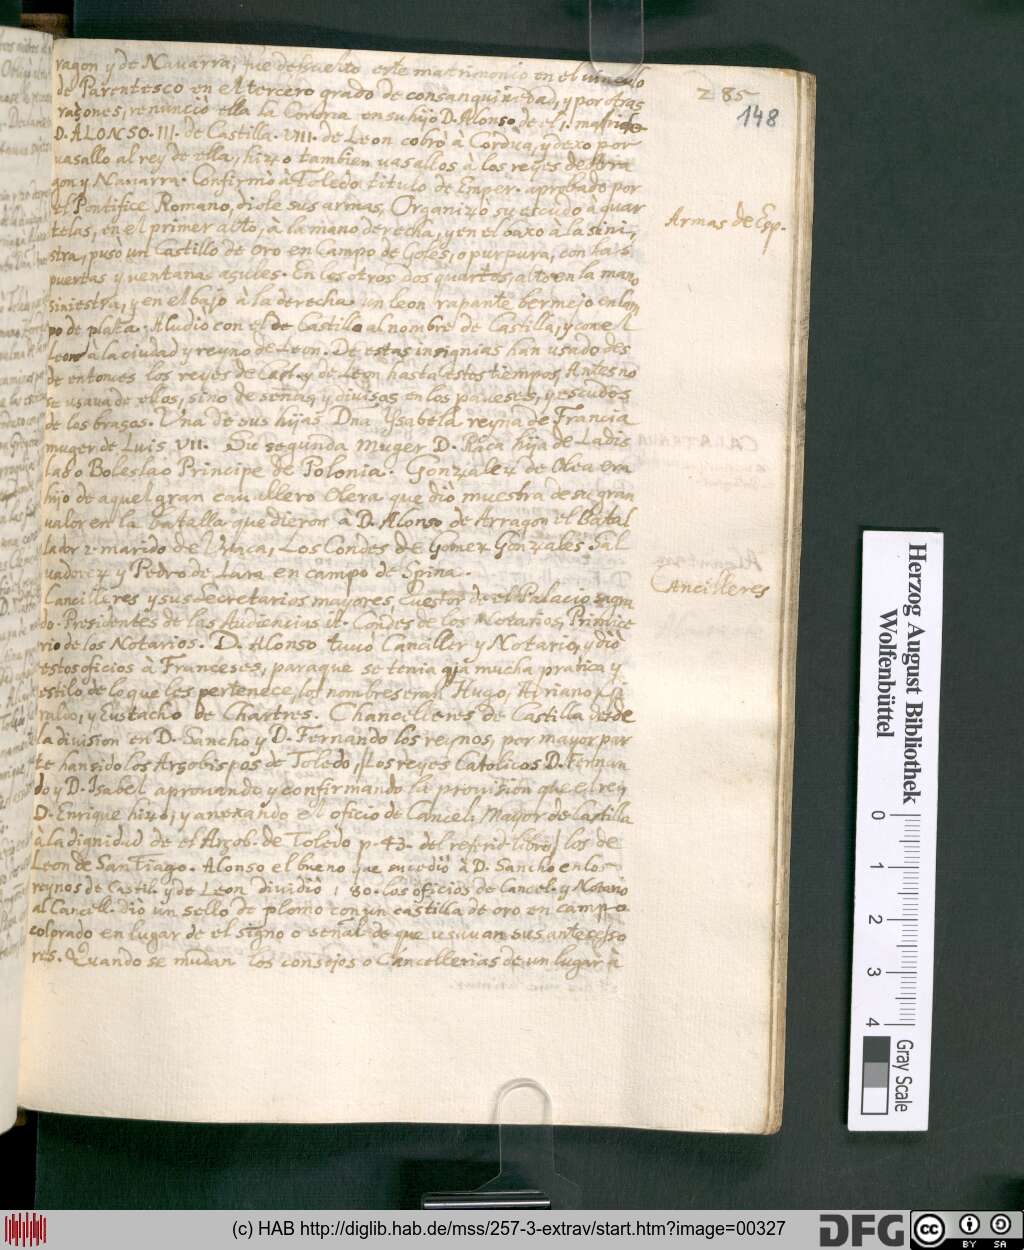 285
148
ragon y de Nauarra, fue desuelto este matrimonio en el uinculo
de Parentesco en el tercero grado de consanguinidad, y por otras
raçones, renunciò ella la Corona en su hijo D. Alonso de el 1. marido
D. ALONSO. III. de Castilla. VIII. de Leon cobrò à Cordua, y dexo por
vasallo al rey de ella, hizo tambien vasallos à los reyes de Arra
gon y Nauarra. Confirmò à Toledo titulo de Emper. aprobado por
el Pontifice Romano, diole sus armas, Organizò su escudo à quar
telas, en el primer alto, à la mano derecha, y en el baxo à la sini,
stra, pusò un Castillo de oro en Campo de Goles, o purpura, con las
puertas y ventanas açules. En los otros dos quartos, alto en la mano
siniestra, y en el bajo à la derecha un leon rapante bermejo en cam
po de plata. Aludiò con el de Castillo al nombre de Castilla, y con el
leon à la ciudad y reyno de Leon. De estas insignias han usado des
de entonces los reyes de Cast. y de Leon hasta estos tiempos, Antes no
se usaua de ellos, sino de señas, y divisas en los paueses, y escudos
de los brasos. Una de sus hijas Dna Ysabela reyna de Francia
muger de Luis VII. Su segunda Muger D. Rica hija de Ladis
lao o Boleslao Principe de Polonia. Gonzalez de Olea era
hijo de aquel gran cauallero Olera que diò muestra de su gran
valor en la batalla que dieron à D. Alonso de Arragon el Batal
lador 2. marido de Urraca, Los Condes de Gomez Gonzales Sal
uadorez y Pedro de Lara en campo de Spina.
Cancilleres y sus Secretarios mayores, Cuestor de el Palacio sagra
do. Presidentes de las Audiencias it. Condes de los Notarios, Primice
rio de los Notarios. D. Alonso tuuò Canciller y Notario, y diò
estos oficios à Franceses, para que se tenia mucha pratica y
estilo de lo que les pertenece, los nombres eran Hugo, Adriano, Gi
raldo, y Eustacho de Chartres. Chancilleres de Castilla desde
la division en D. Sancho y D. Fernando los reynos, por mayor par
te han sido los Arçobispos de Toledo, Los reyes Catolicos D. Fernan
do y D. Isabel aprouando y confirmando la prouision que el rey
D. Enrique hizò, y anexando el oficio de Cancel. Mayor de Castilla
à la dignidad de el Arçob. de Toledo p. 43. del referid libro, los de
Leon de San Tiago. Alonso el bueno que sucediò à D. Sancho en los
reynos de Castil. y de Leon diuidiò los oficios de Cancel. y Notario
al Cancill. diò un sello de plomo con un castilla de oro en campo
colorado en lugar de el signo o señal de que usauan sus antecesso
res. Quando se mudan los consejos o Cancellerias de un lugar à
Armas de Esp.
Cancilleres
Herzog August Bibliothek
Wolfenbüttel
0 1 2 3 4
Gray Scale
(c) HAB http://diglib.hab.de/mss/257-3-extrav/start.htm?image=00327
DFG
cc BY SA